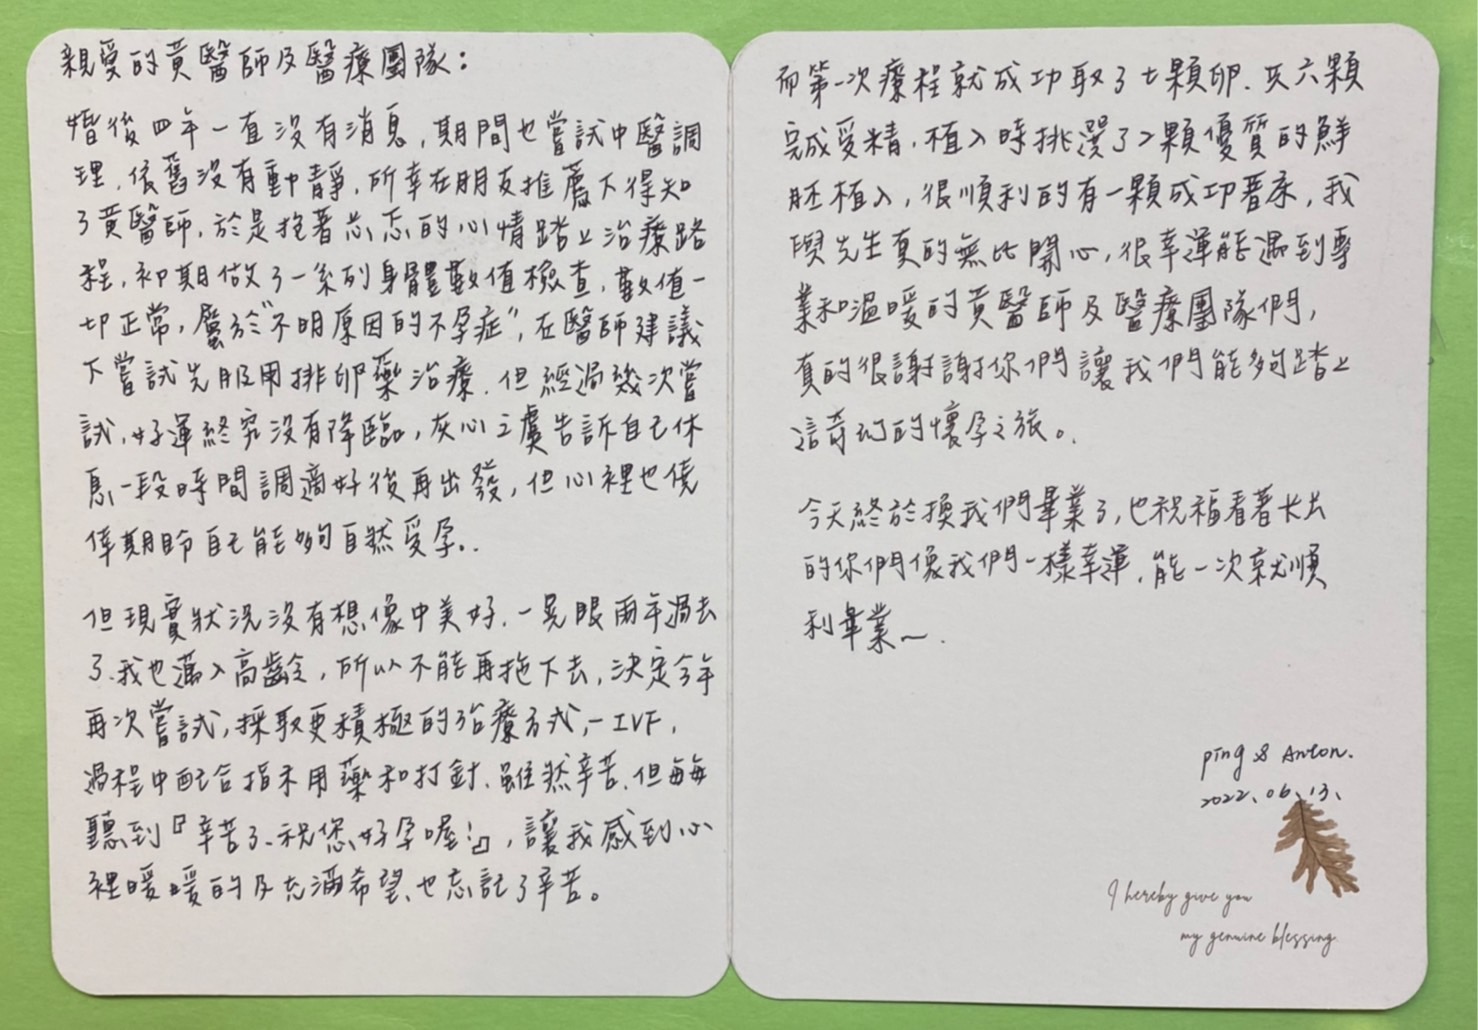 親愛的黃醫師及醫療團隊：
婚後四年一直沒有消息，期間也嘗試中醫調
理，依舊沒有動靜，所幸在朋友推薦下得知
了黃醫師，於是抱著忐忑的心情踏上治療路
程，初期做了一系列身體數值檢查，數值一
切正常，屬於"不明原因的不孕症"，在醫師建議
下嘗試先服用排卵藥治療，但經過幾次嘗
試，好運終究沒有降臨，灰心之虞告訴自己休
息一段時間調適好後再出發，但心裡也僥
倖期盼自己能夠自然受孕..
但現實狀況沒有想像中美好，一晃眼兩年過去
了、我也邁入高齡，所以不能再拖下去，決定今年
再次嘗試，採取更積極的治療方式，－IVF，
過程中配合指示用藥和打針、雖然辛苦、但每每
聽到『辛苦了、祝您好孕喔！』，讓我感到心
裡暖暖的及充滿希望、也忘記了辛苦。
而第一次療程就成功取了七顆卵、共六顆
完成受精，植入時挑選了2顆優質的鮮
胚植入，很順利的有一顆成功著床，我
與先生真的無比開心，很幸運能遇到專
業和溫暖的黃醫師及醫療團隊們，
真的很謝謝你們讓我們能夠踏上
這奇幻的懷孕之旅。.
今天終於換我們畢業了，也祝福看著卡片
的你們像我們一樣幸運，能一次就順
利畢業～.
Ping & Anton.
2022、06、13、
I hereby give you
my genuine blessing